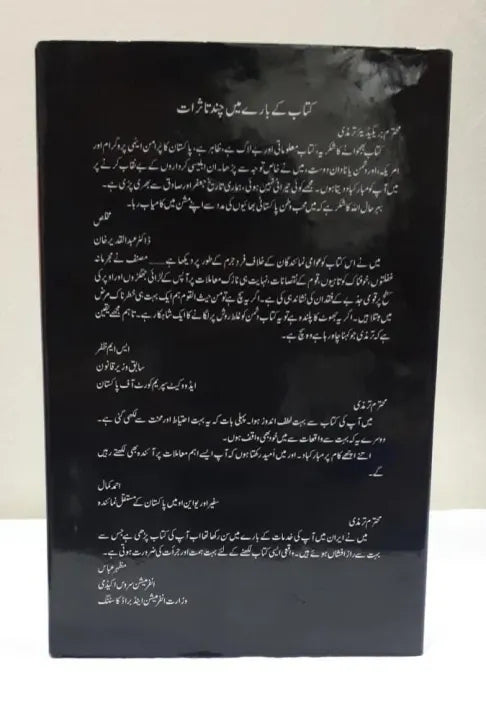 کتاب کے بارے میں چند تاثرات
محترم: بریگیڈیئر ترمذی
کتاب بھجوانے کا شکریہ یہ کتاب معلوماتی اور بے لاگ ہے، ظاہر ہے، پاکستان کا پرامن ایٹمی پروگرام اور
امریکہ، اور دشمن یا نادان دوست، میں نے خاص توجہ سے پڑھا۔ ان ابلیسی کرداروں کے بے نقاب کرنے پر
میں آپ کو مبارکباد دیتا ہوں۔ مجھے کوئی حیرانی نہیں ہوئی، ہماری تاریخ جعفر اور صادق سے بھری پڑی ہے۔
بہرحال اللہ کا شکر ہے کہ میں محب وطن پاکستانی بھائیوں کی مدد سے اپنے مشن میں کامیاب رہا۔
مخلص
ڈاکٹر عبدالقدیر خان
میں نے اس کتاب کو عوامی نمائندگان کے خلاف فرد جرم کے طور پر دیکھا ہے ــــــ مصنف نے مجرمانہ
غفلتوں، خوفناک کوتاہیوں، قوم کے نقصانات، نہایت ہی نازک معاملات پر آپس کے لڑائی جھگڑوں اور اوپر کی
سطح پر قومی جذبے کے فقدان کی نشاندہی کی ہے۔ اگر یہ سچ ہے تو من حیث القوم ہم ایک بہت ہی خطرناک مرض
میں مبتلا ہیں۔ اگر یہ جھوٹ کا پلندہ ہے تو یہ کتاب دشمن کو غلط روش پر لگانے کا ایک شاہکار ہے۔ تاہم مجھے یقین
ہے کہ ترمذی جو کہنا چاہ رہا ہے وہ سچ ہے۔
ایس ایم ظفر
سابق وزیر قانون
ایڈووکیٹ سپریم کورٹ آف پاکستان
محترم ترمذی
میں آپ کی کتاب سے بہت لطف اندوز ہوا۔ پہلی بات کہ یہ بہت احتیاط اور محنت سے لکھی گئی ہے۔
دوسرے یہ کہ بہت سے واقعات سے میں خود بھی واقف ہوں۔
اتنے اچھے کام پر مبارکباد۔ اور میں امید رکھتا ہوں کہ آپ ایسے اہم معاملات پر آئندہ بھی لکھتے رہیں
گے۔
احمد کمال
سفیر اور یو این او میں پاکستان کے مستقل نمائندہ
محترم ترمذی
میں نے ایران میں آپ کی خدمات کے بارے میں سن رکھا تھا اب آپ کی کتاب پڑھی ہے جس سے
بہت سے راز افشاں ہوئے ہیں۔ واقعی ایسی کتاب لکھنے کے لئے بہت ہمت اور جرأت کی ضرورت ہوتی ہے۔
مظہر عباس
انفرمیشن سروس اکیڈمی
وزارت انفرمیشن اینڈ براڈ کاسٹنگ